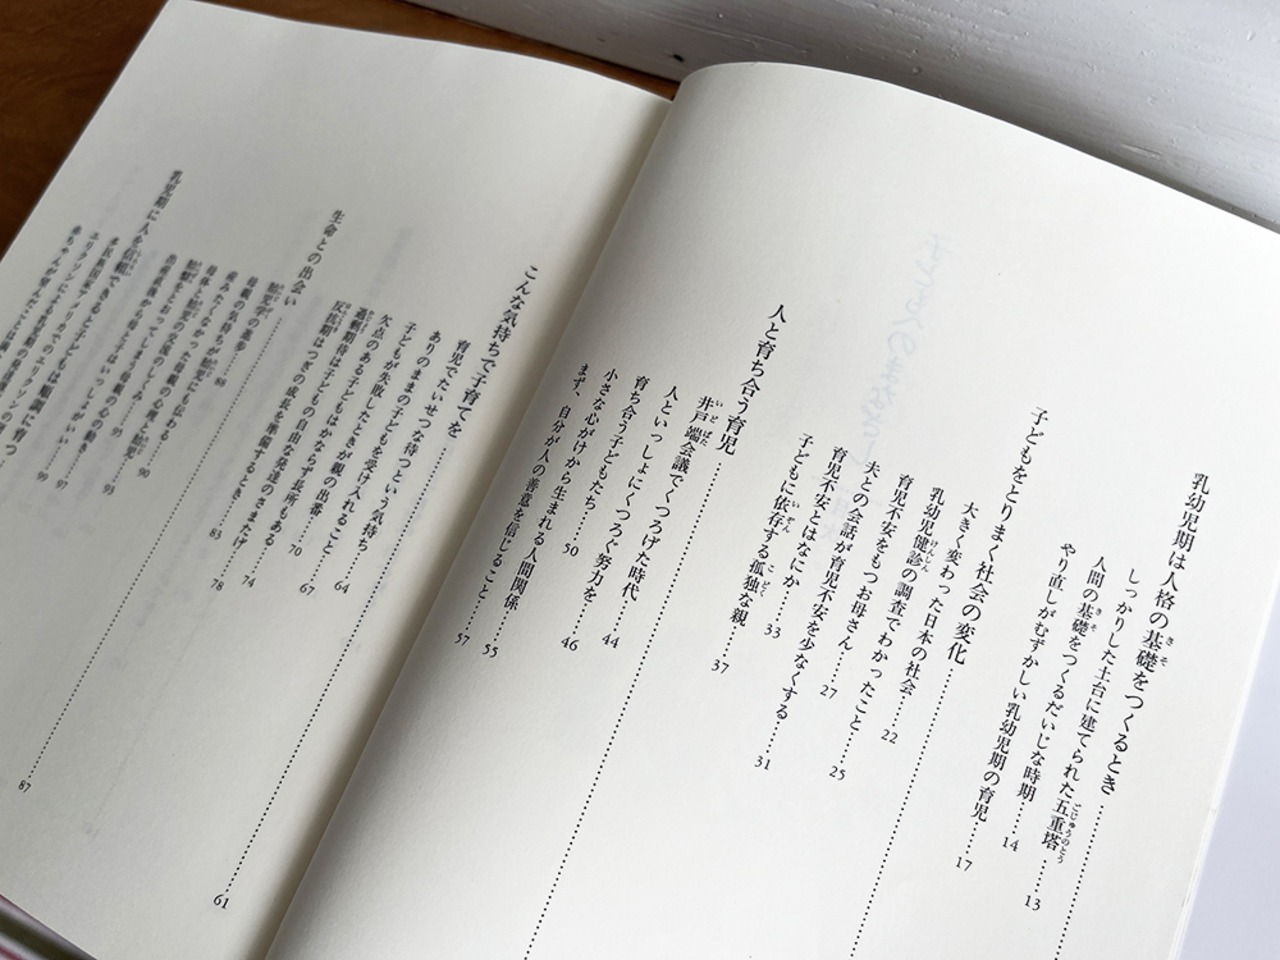 乳幼児期は人格の基礎をつくるとき
しっかりした土台に建てられた五重塔……13
人間の基礎をつくるだいじな時期……14
やり直しがむずかしい乳幼児期の育児……17
子どもをとりまく社会の変化
大きく変わった日本の社会……22
乳幼児健診の調査でわかったこと……25
育児不安をもつお母さん……27
夫との会話が育児不安を少なくする……31
育児不安とはなにか……33
子どもに依存する孤独な親……37
人と育ち合う育児
井戸端会議でくつろげた時代……44
人といっしょにくつろぐ努力を……46
育ち合う子どもたち……50
小さな心がけから生まれる人間関係……55
まず、自分が人の善意を信じること……57
こんな気持ちで子育てを……61
育児でたいせつな待つという気持ち……64
ありのままの子どもを受け入れること……67
子どもが失敗したときが親の出番……70
欠点のある子どもはかならず長所もある……74
過剰期待は子どもの自由な発達のさまたげ……78
反抗期はつぎの成長を準備するとき……83
生命との出会い……87
胎児学の進歩……88
母親の気持ちが胎児にも伝わる……90
産みたくなかった母親の心理と胎児……93
母体と胎児の交流のしくみ……95
乳児期に人を信頼